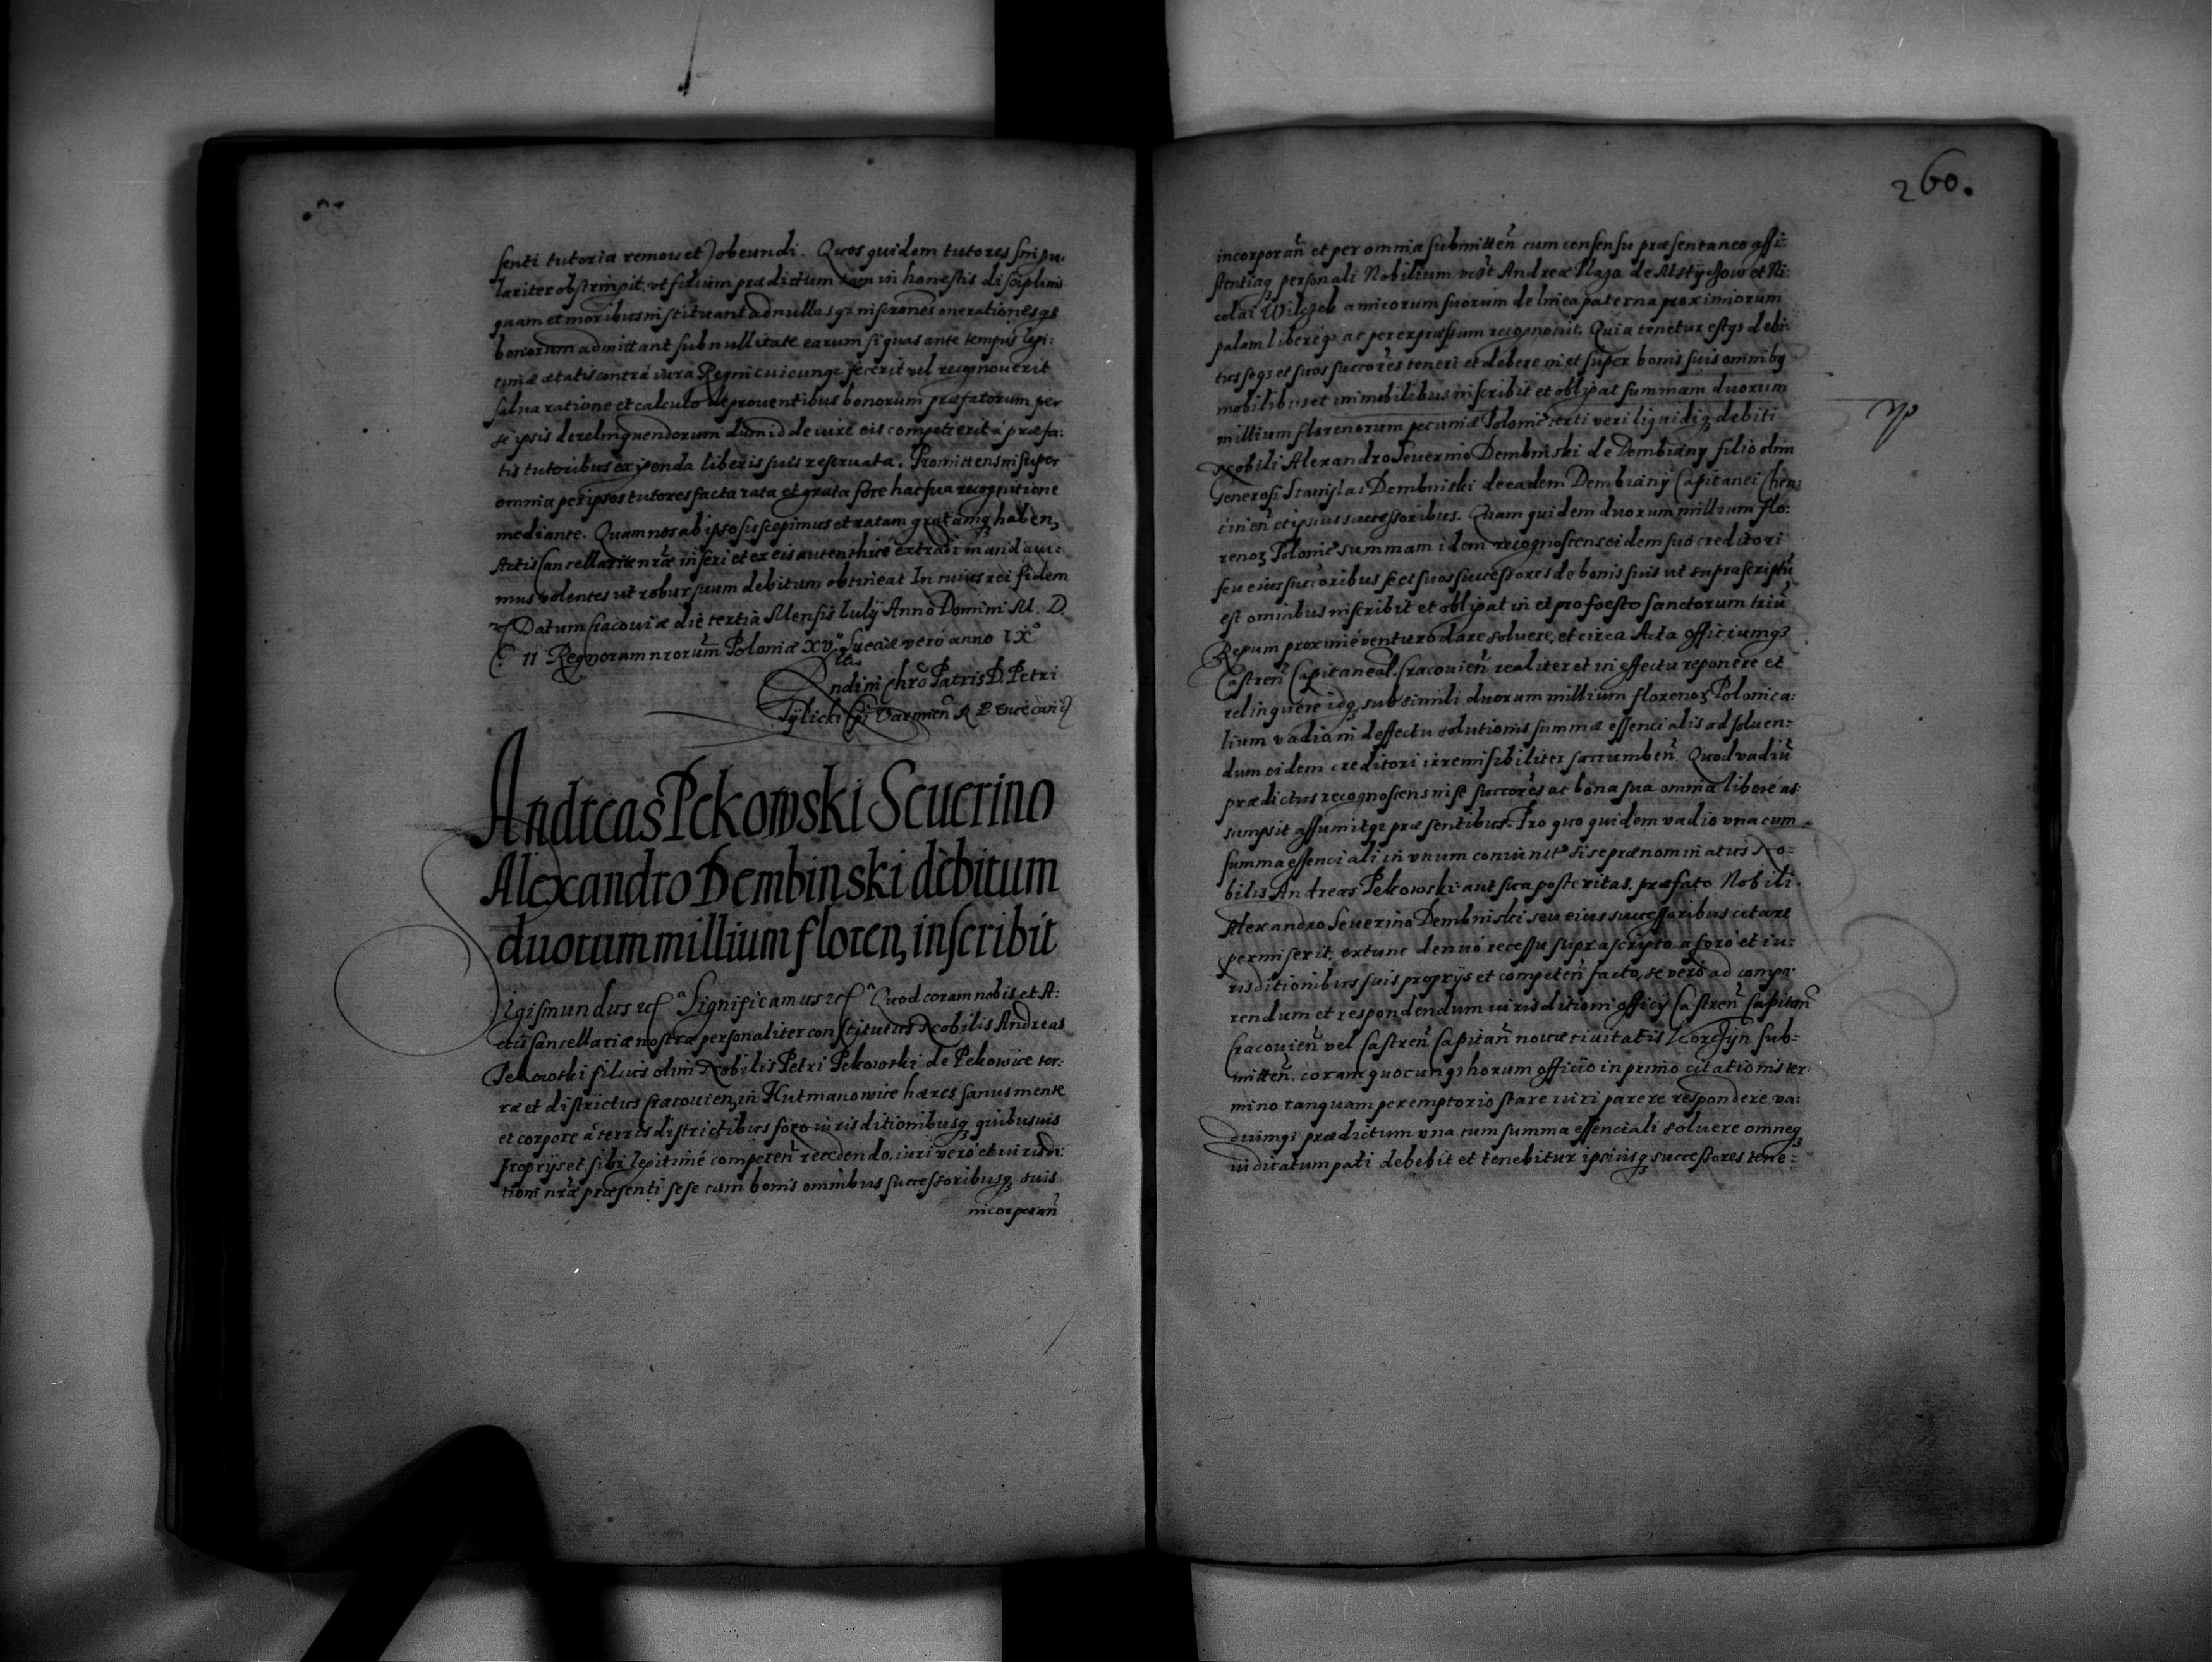 senti tutoria remouet obeundi. Quos quidem tutores stipu-
lariter obstrinxit, vt filium prædictum tam in honestis disciplinis
quam et moribus instituant ad nullasqȝ inscrōnes onerationesqȝ
bonorum admittant sub nullitate earum si quas ante tempus legi:
timæ ætatis contra iura Regni cuicunqȝ fecerit vel recognouerit
salua ratione et calculo de prouentibus bonorum præfatorum per
se ipsis derelinquendorum dum id de iure eis competierit a præfa:
tis tutoribus exigenda liberis suis reseruata. Promittens insuper
omnia per ipsos tutores facta rata et grata fore hac sua recognitione
mediante. Quam nos ab ipso suscepimus et ratam gratamqȝ haben̄
Actis Cancellariæ nr̄æ inseri et ex eis autenthicè extradi mandaui:
mus volentes ut robur suum debitum obtineat In cuius rei fidem
Datum Cracouiæ die tertia Mensis Iulij Anno Domini M. D.
C. II Regnorum nrōrum Poloniæ XV° Sueciæ vero anno IX°
Rela
ndi in Chrō Patris D. Petri
Tÿlicki Ep̄i Varmien̄ R P Vicecan
Andreas Pekowski Seuerino
Alexandro Dembinski debitum
duorum millium floren̄ inscribit
Sigismundus Significamus Quod coram nobis et A:
ctis Cancellariæ nostræ personaliter constitutus Nobilis Andreas
Pekowski filius olim Nobilis Petri Pekowski de Pekowice ter:
ræ et districtus Cracouien̄ in Hutmanowice hæres sanus mente
et corpore a terris districtibus foro iurisditionibusqȝ quibusuis
proprijs et sibi legitimé competen̄ recedendo, iuri vero et iurisdi:
tioni nr̄æ præsenti sese cum bonis omnibus successoribusqȝ suis
incorporan̄
260.
incorporan̄ et per omnia submitten̄ cum consensu præsentaneo assi:
stentiaqȝ personali Nobilium vꝫt Andreæ Plaza de Mstÿczow et Ni:
colai Wilczek amicorum suorum de linea paterna proximiorum
palam libereqȝ ac per expræssum recognouit. Quia tenetur estqȝ debi:
tus seqȝ et suos succōres teneri et debere in et super bonis suis omnibȝ
mobilibus et immobilibus inscribit et obligat summam duorum
millium florenorum pecuniæ Polonic̄ certi veri liquidiqȝ debiti
Nobili Alexandro Seuerino Dembinski de Dembianÿ filio olim
Generosi Stanislai Dembinski de eadem Dembianÿ Capitanei Chen:
cinen̄ et ipsius successoribus. Quam quidem duorum millium flo:
renoȝ Polonic̄ summam idem recognoscens eidem suo creditori
seu eius succoribus se et suos successores de bonis suis ut suprascriptū
est omnibus inscribit et obligat in et pro foesto Sanctorum triū
Regum proximé venturo dare soluere, et circa Acta officiumqȝ
Castren̄ Capitaneal. Cracouien̄ realiter et in effectu reponere et
relinquere idqȝ sub simili duorum millium florenoȝ Polonica:
lium vadio in deffectu solutionis summæ essencialis ad soluen:
dum eidem creditori irremisibiliter succumben̄. Quod vadiū
prædictus recognoscens in se succōres ac bona sua omnia liberé as:
sumpsit assumitqȝ præsentibus. Pro quo quidem vadio vna cum
summa essenciali in vnum coniunct° si se prænominatus No=
bilis Andreas Pekowski aut sua posteritas, præfato Nobili
Alexandro Seuerino Dembinski seu eius successoribus citare
permiserit, extunc denuó recessu suprascripto a foro et iu:
risditionibus suis proprÿs et competen̄ facto, se vero ad compa:
rendum et respondendum iurisditioni officÿ Castren̄ Capitan̄
Cracouien̄ vel Castren̄ Capitan̄ nouæ ciuitatis Korczÿn sub=
mitten̄. coram quocunqȝ horum officio in primo citationis ter:
mino tanquam peremptorio stare iuri parere respondere, va:
diumqȝ prædictum vna cum summa essenciali soluere omneqȝ
iudicatum pati debebit et tenebitur ipsiusqȝ successores tene=